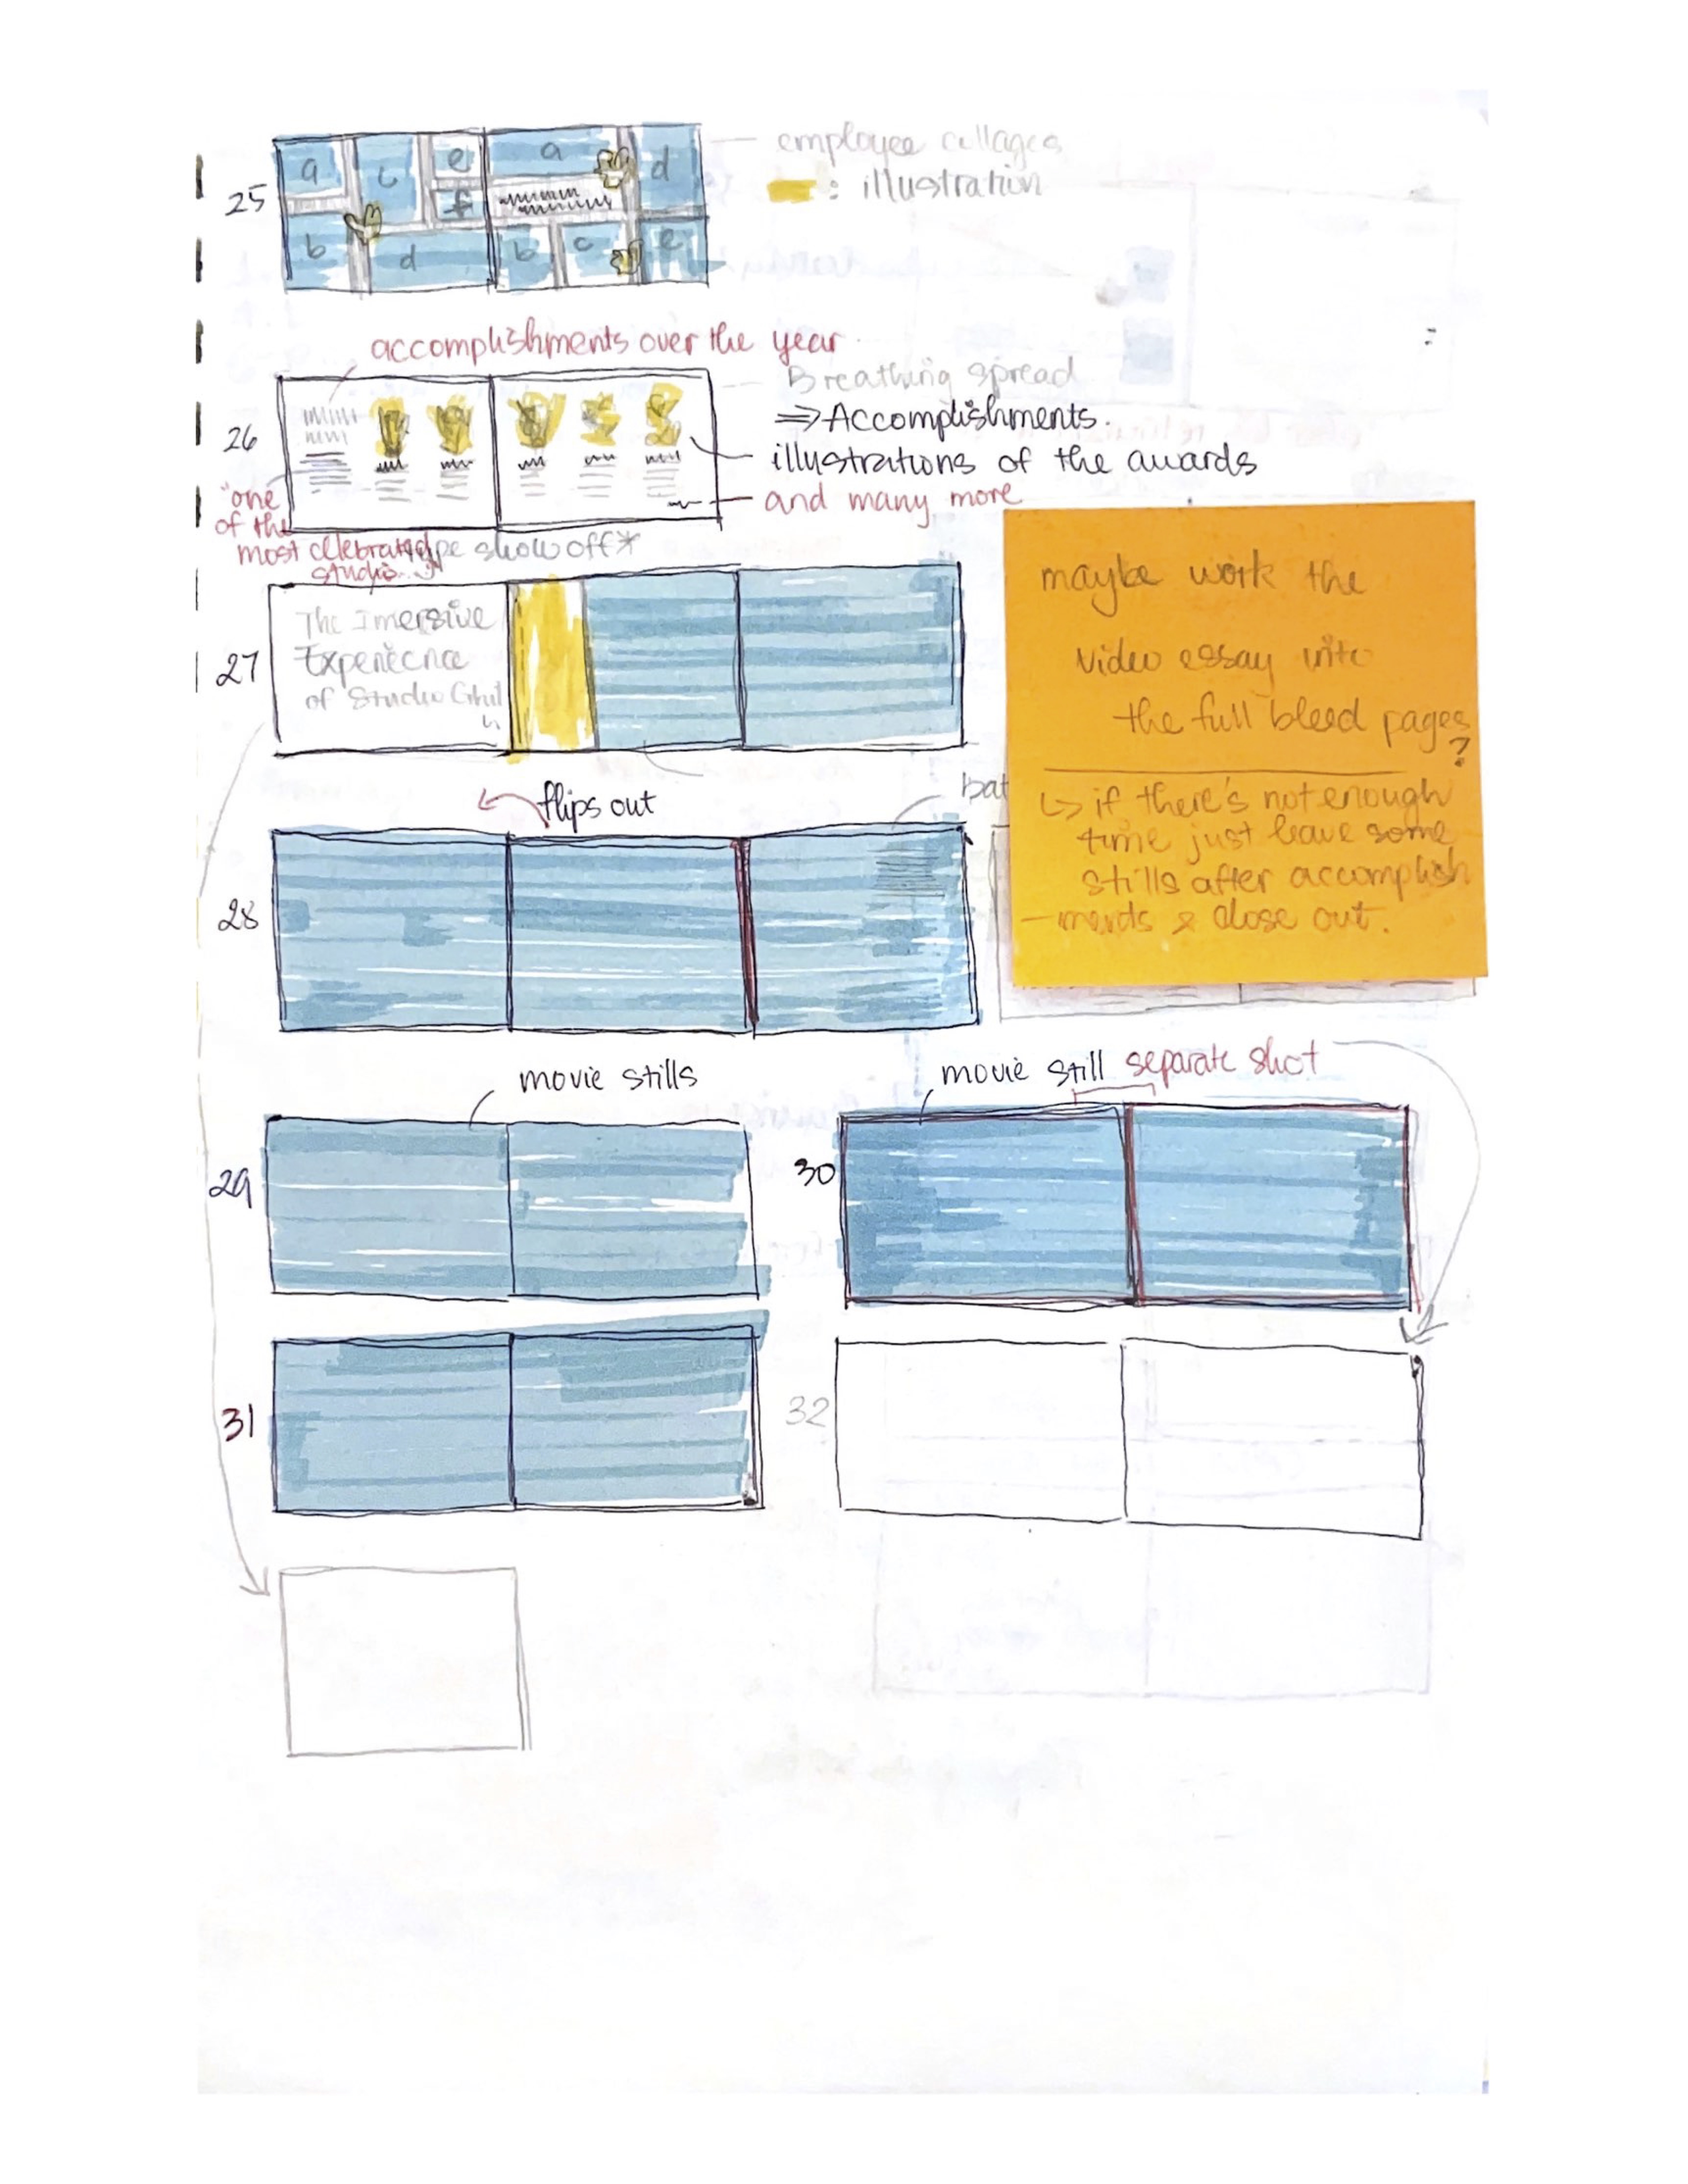 25
a
c
e
f
b
d
a
d
b
c
e
employee collages
: illustration
accomplishments over the year
26
Breathing spread
⇒ Accomplishments.
illustrations of the awards
and many more
"one
of the
most celebrated
studios...
show off*
27
The Imersive
Experiecnce
of Studio Ghi
maybe work the
video essay into
the full bleed pages
?
↳ if there's not enough
time just leave some
stills after accomplish
-ments & close out.
flips out
28
movie stills
29
movie still separate shot
30
31
32